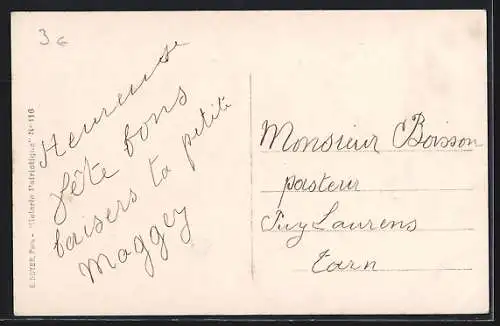 3 €
Heureuse
fête bons
baisers ta petite
Maggey
E. NOYER, Paris - "Galerie Patriotique" N° 116
Monsieur Boisson
pasteur
Puy Laurens
Tarn